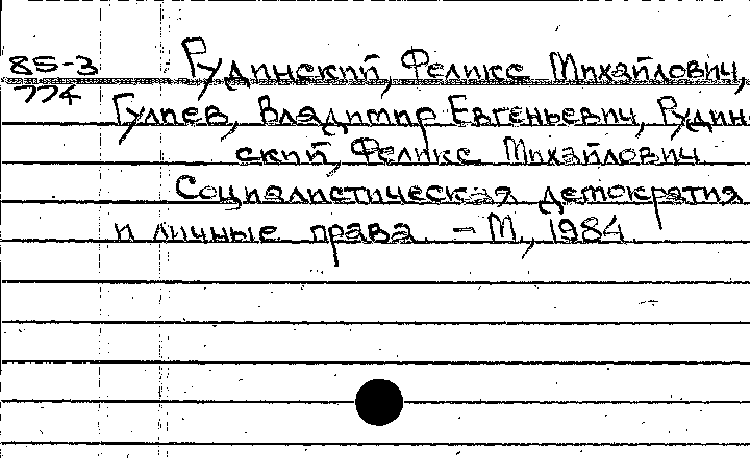 85-3
774
Рудинский, Феликс Михайлович,
Гулиев, Владимир Евгеньевич, Рудин-
ский, Феликс Михайлович
Социалистическая демократия
и личные права. – М., 1984.